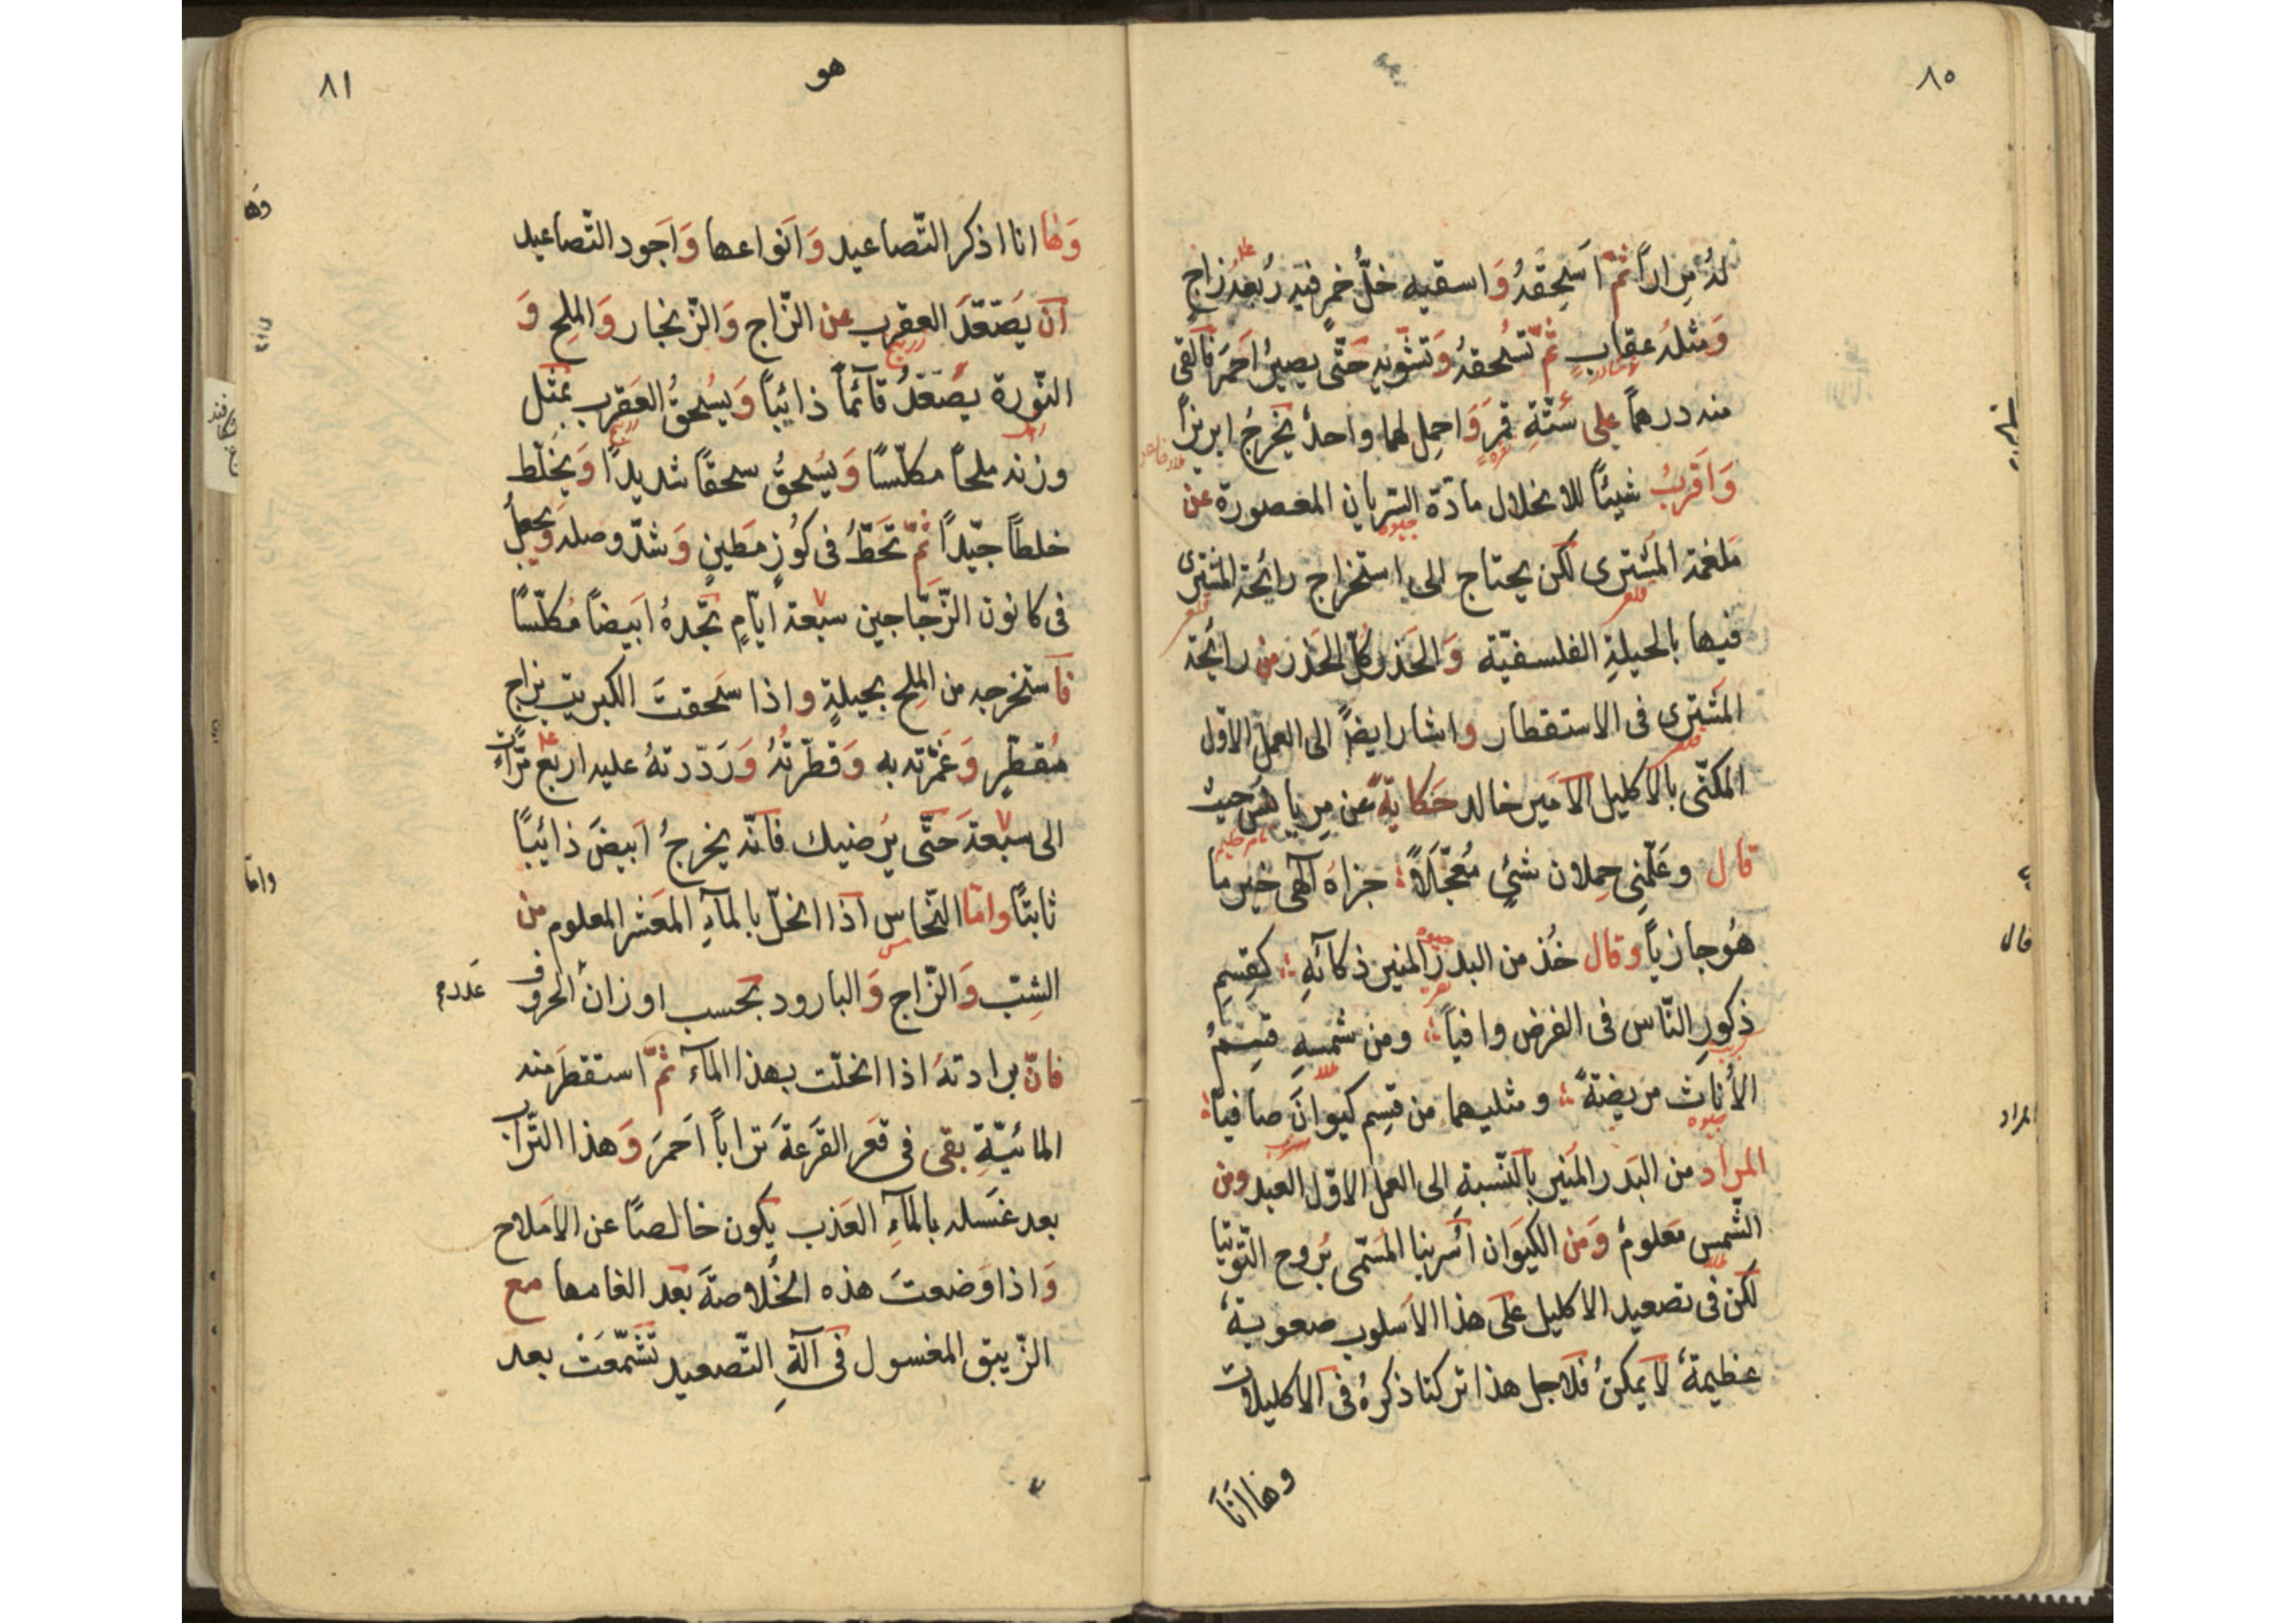 ٨٠
لهُ مراراً ثمّ اسحقهُ وَاسقيه خلُّ خمرٍ فيه رُبعهُ زاجٍ
وَمثلهُ عقاب ثمّ تسحقهُ وَتشّويه حَتّى يصيرُ اَحمرَ فَالقى
منه درهماً على ستّةِ قمَرٍ وَاحمِل لهما واحدٌ يخرجُ ابريزاً
وَاقربُ شيئًا للانحلال مادّة السّريان المعصورة عن
ملغمة المشترى لكن يحتاج الى استخراج رائحة المشترى
فيها بالحيلةِ الفلسفيّة وَالحَذر كلّ الحَذر من رائحة
المشترى فى الاستقطار واشار ايضاً الى العمل الاوّل
المكنّى بالاكليل الاَمير خالد حَكايةً عن مِريانس حيث
قال وعَلّمنِى حِملان شئٍ مُعجّلاً جزاهُ آلهى خير ما
هُو جازياً وقال خُذ من البدر المنير ذكآئهِ كقسِمِ
ذكورِ النّاس فى الفرض وافياً ومن شمسهِ قسِمُ
الأُناث مريضةً ومثليهما من قسِم كيوانَ صافياً
المراد من البَدر المنير بالنّسبةِ الى العمل الاوّل العبد ومن
الشّمس مَعلومٌ وَمن الكيَوان اسربنا المسّمى بُروح التّوتيا
لكن فى تصعيد الاكليل على هذا الاسلوب صعوبةٌ
عظيمةٌ لا يمكنُ فلاجل هذا تركنا ذكرهُ فى الاكليلات
وها اَنَا
قال
المراد
هو
٨١
وَها انا اذكر التّصاعيد وَانواعها وَاَجود التّصاعيد
اَن يَصّعّدَ العقرب عن الزّاج وَالزّنجار وَالملح وَ
النّورة يصّعّدُ قآئماً ذائباً وَيسُحقُ العَقرب بمثل
وزنه ملحاً مكلّسًا وَيسُحقُ سحقًا شديدًا وَيخَلّط
خلطاً جيّداً ثمّ تَحَطُّ فى كوُزٍ مَطينٍ وَشدّ وصله وَيجعلُ
فى كانون الزّجّاجين سبعة ايّامٍ تجدهُ ابيضاً مُكلّسًا
فاَستخرجه من الملح بحيلةٍ واذا سَحقتَ الكبريت بزاجٍ
مُقطّرٍ وَغمَرته به وَقطّرتهُ وَرَدّدتهُ عليه اربع مرّات
الى سبعةَ حَتّى يُرضيك فانّه يخرجُ ابيضَ ذائباً
ثابتًا وامّا النّحاس اذا انحلّ بالمآءِ المعشر المعلوم من
الشِبّ وَالزّاج وَالبارود بحسب اوزان الحروف
فانّ برادتهُ اذا انحلّت بهذا المآء ثمّ استقطَر منه
المائيّةِ بقى فى قعر القرَعة تراباً اَحمرَ وَهذا التّراب
بعد غَسله بالمآءِ العَذب يكون خالصًا عن الاَملاح
وَاذا وَضعتَ هذه الخُلاصةَ بعَد الغامها مع
الزّيبق المغسول فى آلةِ التّصعيد تَشّمعَت بعد
وها
وامّا